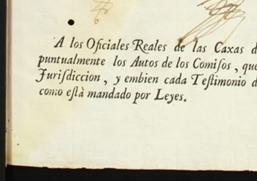 A los Oficiales Reales de las Caxas d
puntualmente los Autos de los Comiſos, que
Juriſdiccion, y embien cada Teſtimonio d
como eſtà mandado por Leyes.